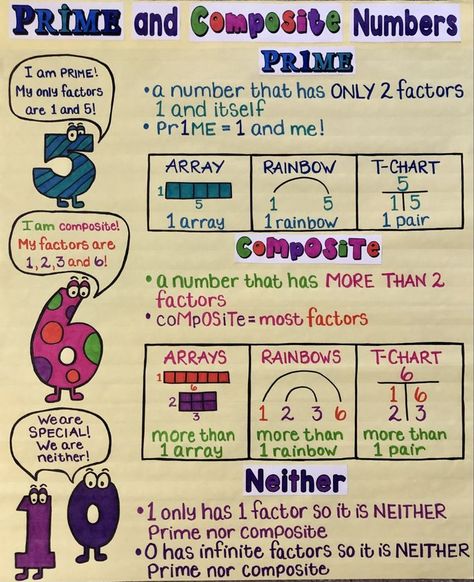 PRiME and COMPOSiTe NUMBERS
I am PRIME!
My only factors
are 1 and 5!
5
PR1ME
• a number that has ONLY 2 factors
1 and itself
• Pr1ME = 1 and me!
ARRAY
1
5
1 array
RAINBOW
1 5
1 rainbow
T-CHART
5
1 5
1 pair
I am composite!
My factors are
1, 2, 3 and 6!
6
COMPOSiTe
• a number that has MORE THAN 2
factors
• coMpOSiTe = most factors
ARRAYS
1
6
2
3
more than
1 array
RAINBOWS
1 2 3 6
more than
1 rainbow
T-CHART
6
1 6
2 3
more than
1 pair
We are
SPECIAL!
We are
neither!
1 0
Neither
• 1 only has 1 factor so it is NEITHER
Prime nor composite
• 0 has infinite factors so it is NEITHER
Prime nor composite